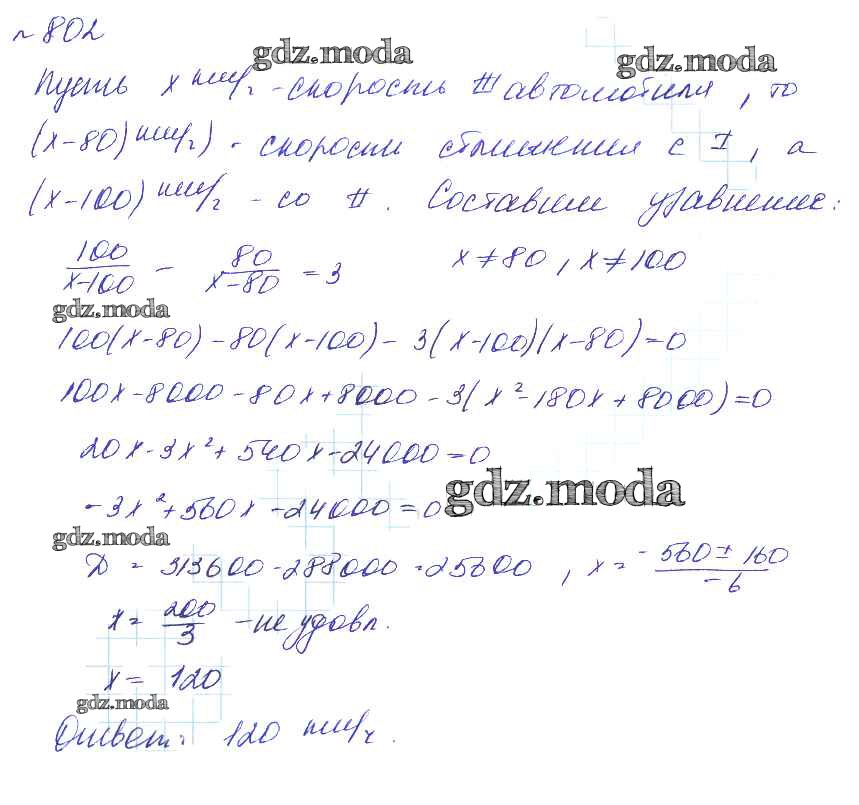 № 802
gdz.moda gdz.moda
Пусть x км/ч - скорость III автомобиля, то
(x-80) км/ч) - скорости сближения с I, а
(x-100) км/ч - со II. Составим уравнение:
100/(x-100) - 80/(x-80) = 3 x≠80, x≠100
gdz.moda
100(x-80)-80(x-100)-3(x-100)(x-80)=0
100x-8000-80x+8000-3(x²-180x+8000)=0
20x-3x²+540x-24000=0
-3x²+560x-24000=0 gdz.moda
gdz.moda
Д = 313600-288000=25600, x = (-560±160)/(-6)
x = 200/3 - не удовл.
x = 120
gdz.moda
Ответ: 120 км/ч.